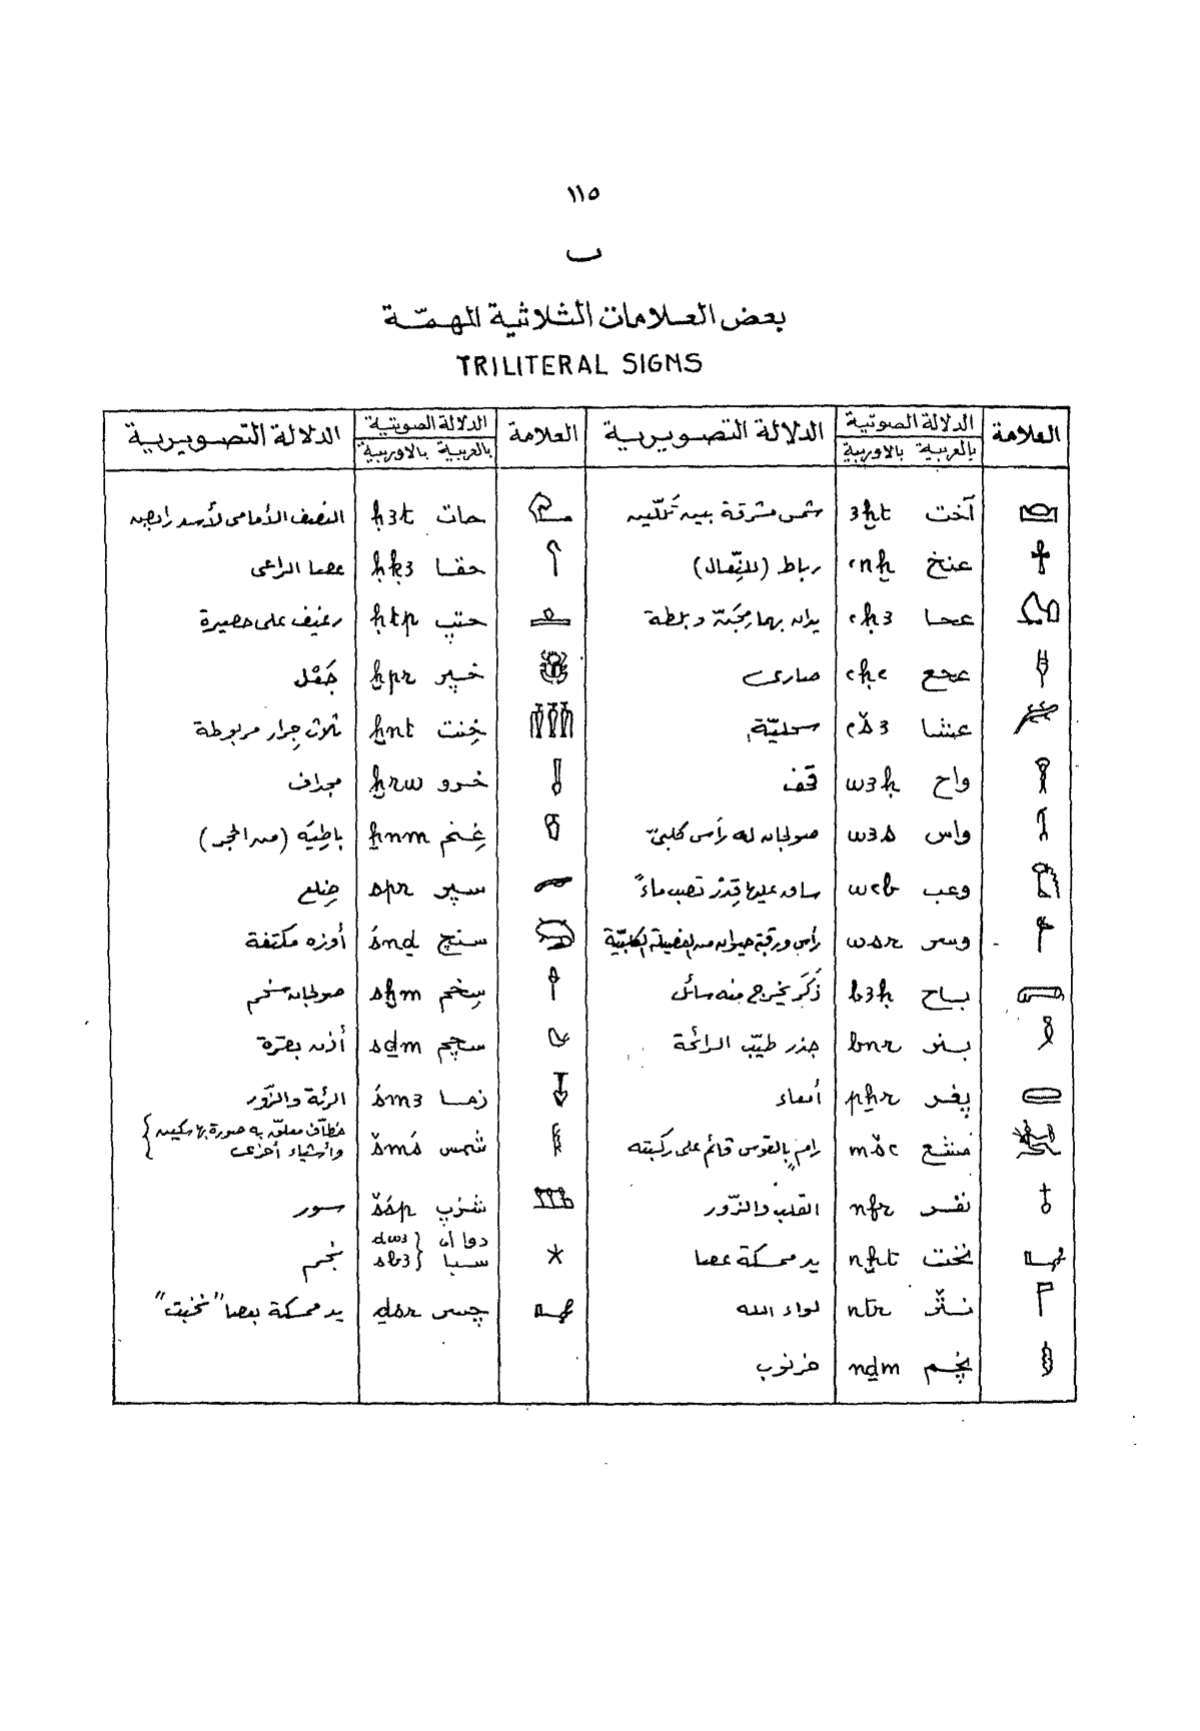 ١١٥
ب
بعض العلامات الثلاثية المهمّة
TRILITERAL SIGNS
العلامة الدلالة الصوتية الدلالة التصويرية العلامة الدلالة الصوتية الدلالة التصويرية
بالعربية بالاوربية بالعربية بالاوربية
آخت ꜣḫt شمس مشرقة بين تلّين حات ḥꜣt النصف الأمامى لأسد رابض
عنخ ꜥnḫ رباط (للنِّعال) حقا ḥḳꜣ عصا الراعى
عحا ꜥḥꜣ يدان بهما مِجَنّ وبلطة حتپ ḥtp رغيف على حصيرة
عحع ꜥḥꜥ صارى خپر ḫpr جَعْل
عشا ꜥšꜣ سحليّة خِنت ḫnt ثلاث جِرار مربوطة
واح wꜣḥ قحف خرو ḫrw مجداف
واس wꜣs صولجان له رأس كلبىّ غِنم ẖnm باطِيَه (من الحجر)
وعب wꜥb ساق عليها قِدْر تصب ماءً سپر spr ضِلع
وسر wsr رأس ورقبة حيوان من الفصيلة الكلبيّة سنج śnḏ أوزه مكتفة
باح bꜣḥ ذَكَر يخرج منه سائل سِخم sḫm صولجان
بنر bnr جذر طيّب الرائحة سجم sḏm أذن بقرة
پخر pẖr أمعاء زما śmꜣ الرئة والزّور
مشع mšꜥ رامٍ بالقوس قائم على ركبته شمس šmś خطّاف معلق به صورة بها سكين
وأشياء أخرى
نفر nfr القلب والزّور شزپ šśp سور
نخت nḫt يد ممسكة عصا دوا أو dwꜣ
سبا sbꜣ نجم
نتر nṯr لواء الله جسر ḏsr يد ممسكة بعصا "نخبت"
نجم nḏm خرنوب